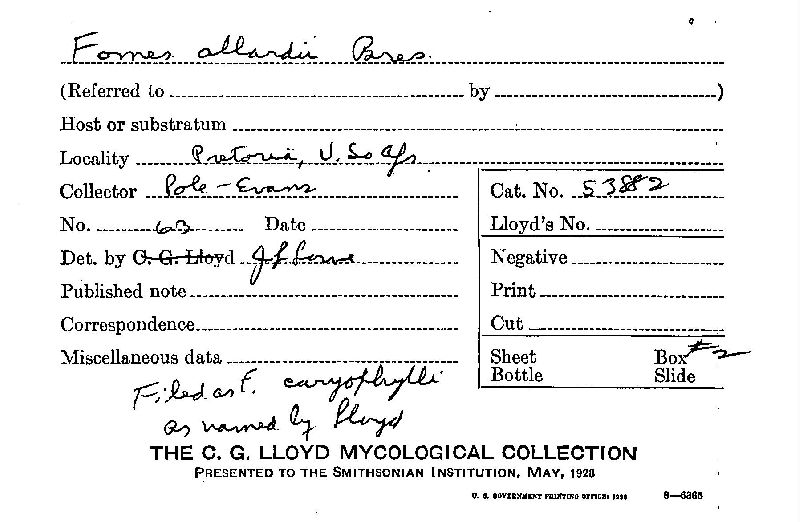 Fomes allardii Bres.
(Referred to by )
Host or substratum
Locality Pretoria, U. So Afr
Collector Pole-Evans
Cat. No. 53882
No. 63 Date
Lloyd's No.
Det. by C. G. Lloyd J L Lowe
Negative
Published note
Print
Correspondence
Cut
Miscellaneous data
Sheet Box #2
Bottle Slide
Filed as F. caryophylli
as named by Lloyd
THE C. G. LLOYD MYCOLOGICAL COLLECTION
PRESENTED TO THE SMITHSONIAN INSTITUTION, MAY, 1928
U. S. GOVERNMENT PRINTING OFFICE: 8—6365